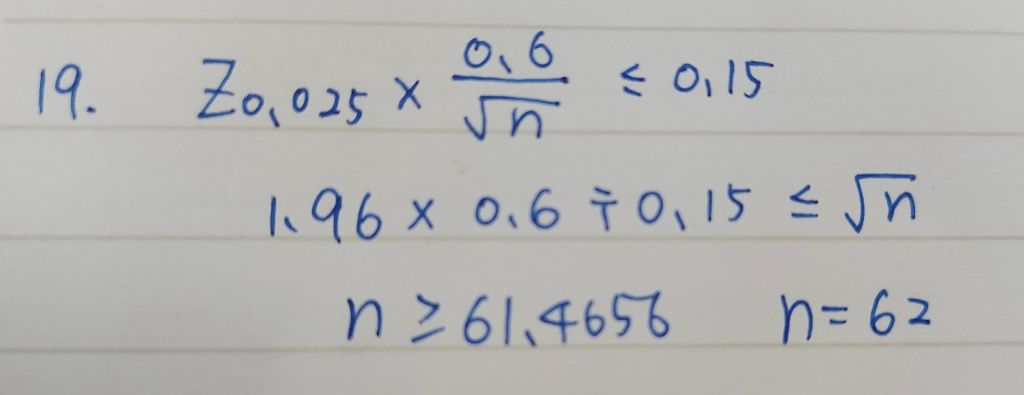 19. Z0.025 × 0.6/√n ≤ 0.15
1.96 × 0.6 ÷ 0.15 ≤ √n
n ≥ 61.4656 n = 62